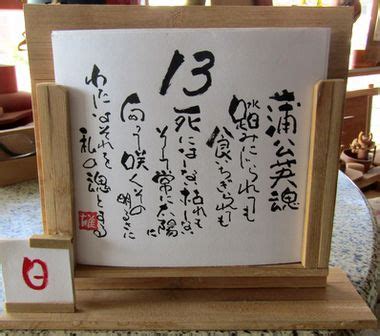 蒲公英魂
踏みにじられても
食いちぎられても
13
死にもしない枯れもしない
そして常に太陽に
向って咲くその明るさ
わたしはそれを
私の魂とする
日